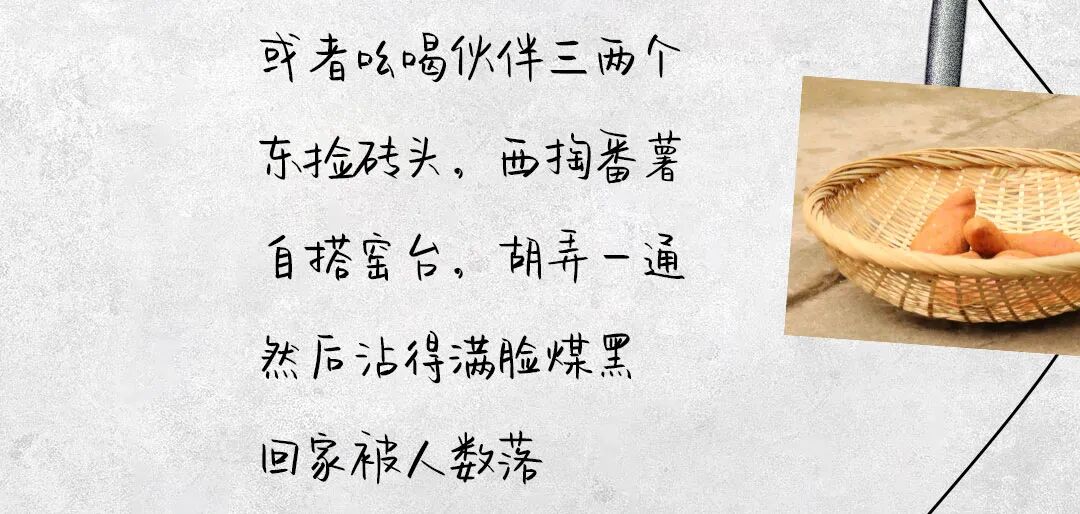 或者吆喝伙伴三两个
东捡砖头，西掏番薯
自搭窑台，胡弄一通
然后沾得满脸煤黑
回家被人数落